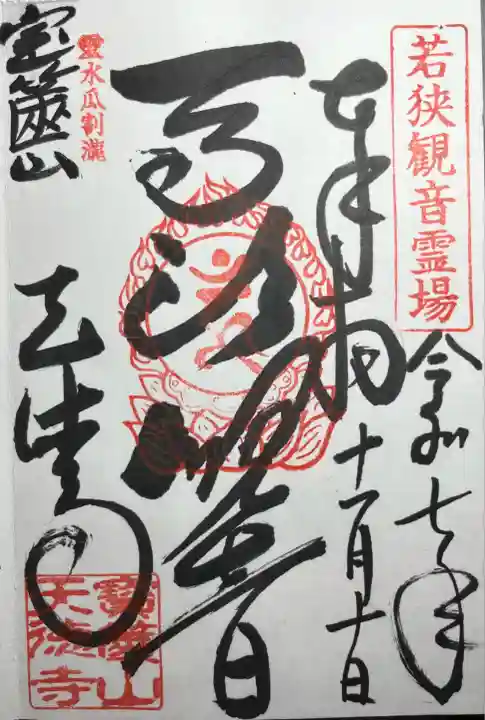 若狭観音霊場
令和七年
奉拝
十一月十日
馬頭観音
靈水瓜割瀧
宝篋山
天徳寺
寶篋山
天徳寺